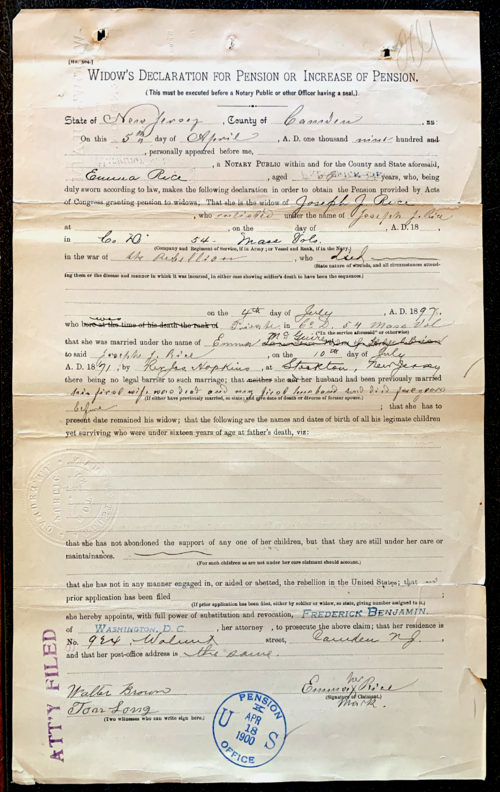 [No. 504.]
WIDOW'S DECLARATION FOR PENSION OR INCREASE OF PENSION.
(This must be executed before a Notary Public or other Officer having a seal.)
State of New Jersey, County of Camden, ss:
On this 5th day of April, A. D. one thousand nine hundred and
, personally appeared before me,
, a NOTARY PUBLIC within and for the County and State aforesaid,
Emma Rice, aged years, who, being
duly sworn according to law, makes the following declaration in order to obtain the Pension provided by Acts
of Congress granting pension to widows: That she is the widow of Joseph J Rice
, who enlisted under the name of Joseph J Rice
at , on the day of , A. D. 18
in Co D. 54. Mass Vols.
(Company and Regiment of Service, if in Army; or Vessel and Rank, if in the Navy.)
in the war of the Rebellion, who died
(State nature of wounds, and all circumstances attend-
ing them or the disease and manner in which it was incurred, in either case showing soldier's death to have been the sequence.)
on the 4th day of July, A. D. 1897,
who was bore at the time of his death the rank of Private in Co D. 54 Mass Vol
("In the service aforesaid" or otherwise)
that she was married under the name of Emma McGuire
to said Joseph J. Rice, on the 10th day of July
A. D. 1891, by Hopkins, at Stockton, New Jersey
there being no legal barrier to such marriage; that neither she nor her husband had been previously married
his first wife was dead and my first husband had died years
(If either have previously married, so state; and give date of death or divorce of former spouse.)
before; that she has to
present date remained his widow; that the following are the names and dates of birth of all his legimate children
yet surviving who were under sixteen years of age at father's death, viz:
that she has not abondoned the support of any one of her children, but that they are still under her care or
maintainances.
(For such children as are not under her care claimant should account.)
that she has not in any manner engaged in, or aided or abetted, the rebellion in the United States; that
prior application has been filed
(If prior application has been filed, either by soldier or widow, so state, giving number assigned to it.)
she hereby appoints, with full power of substitution and revocation, FREDERICK BENJAMIN.
of WASHINGTON, D. C., her attorney, to prosecute the above claim; that her residence is
No. 924 Walnut street, Camden N.J.
and that her post-office address is the same.
Walter Brown
Tom Long
(Two witnesses who can write sign here.)
Emma X Rice
(Signature of Claimant.)
Mark.
ATT'Y FILED
U S PENSION OFFICE
APR
18
1900